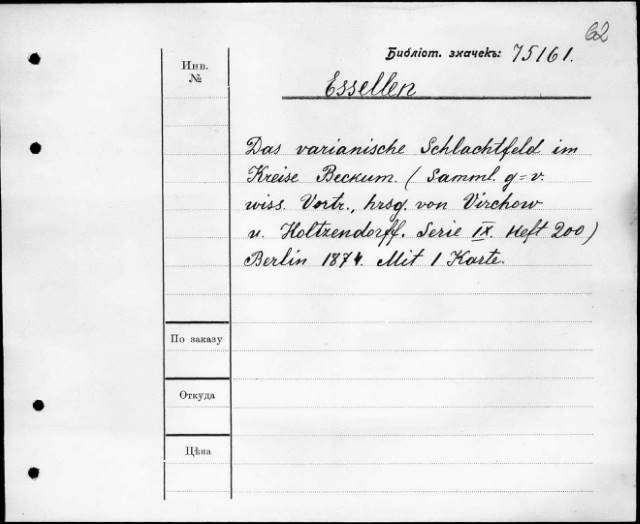 62
Библіот. значекъ: 75161.
Инв.
№
Essellen
Das varianische Schlachtfeld im
Kreise Beckum. (Samml. g=v.
wiss. Vortr., hrsg. von Virchow
u. Holtzendorff. Serie IX. Heft 200)
Berlin 1874. Mit 1 Karte.
По заказу
Откуда
Цѣна